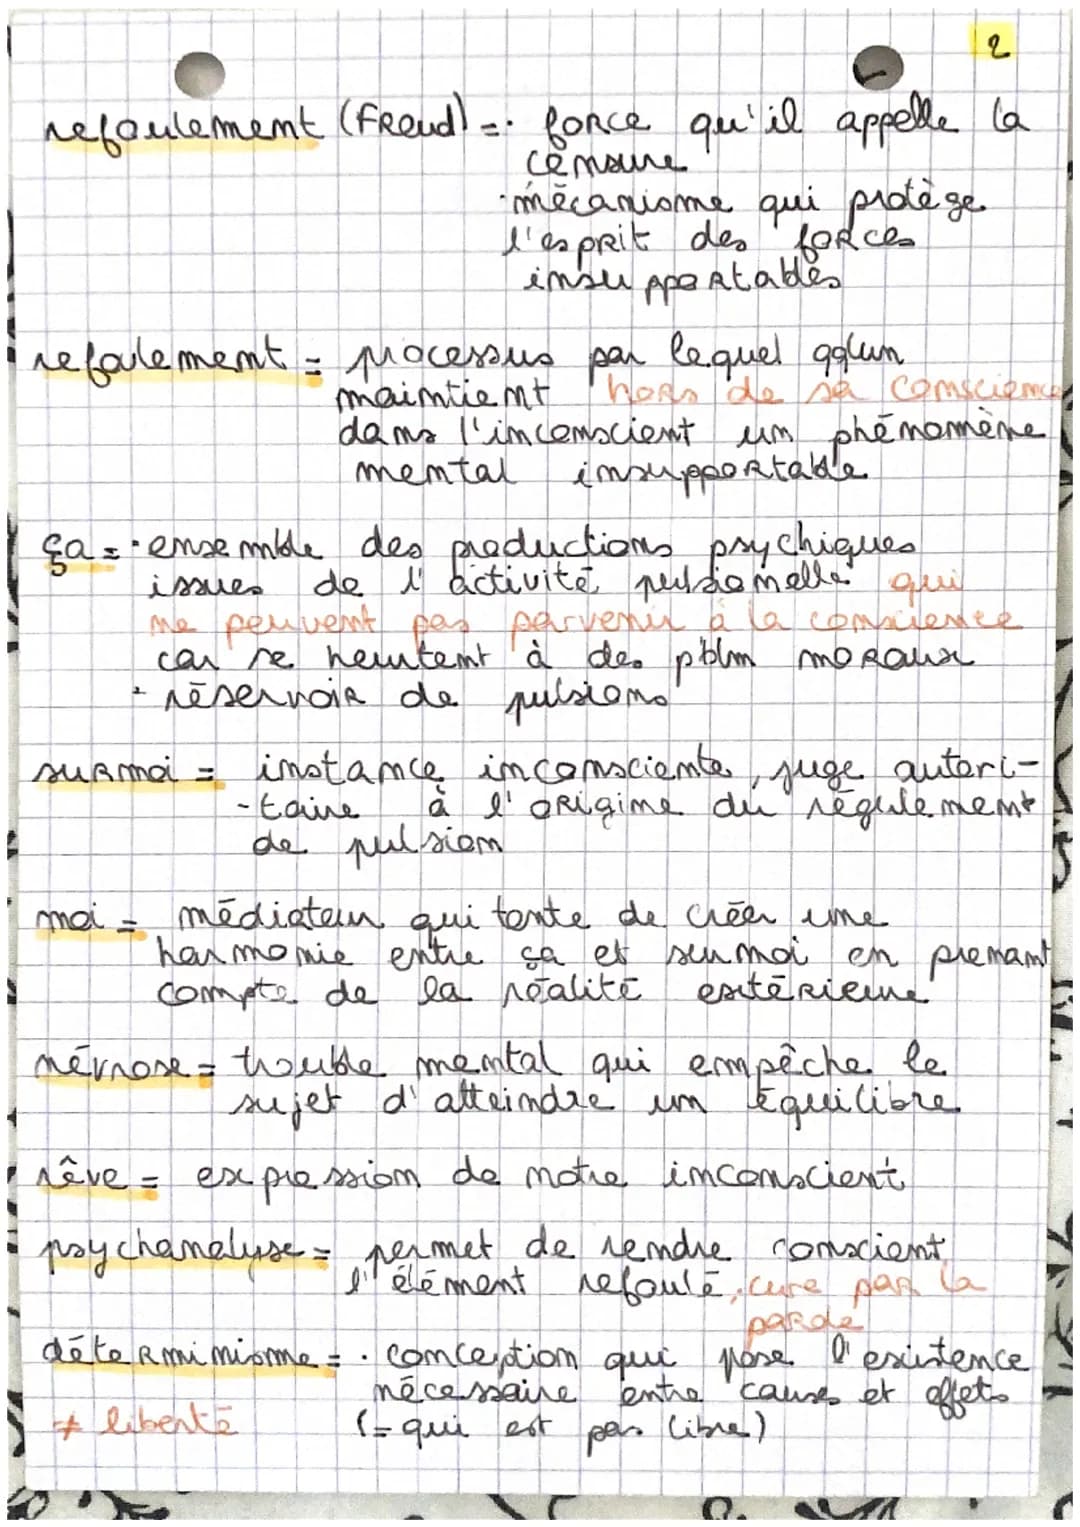 2
refoulement (Freud) = · force qu'il appelle la
censure
· mécanisme qui protège
l'esprit des forces
insupportables
refoulement = processus par lequel qqlun
maintient hors de sa conscience
dans l'inconscient un phénomène
mental insupportable
ça = · ensemble des productions psychiques
issues de l'activité pulsionelle qui
ne peuvent pas parvenir à la conscience
car se heurtent à des pblm moraux
· réservoir de pulsions
surmoi = instance inconsciente, juge autori-
-taire à l'origine du régulement
de pulsion
moi = médiateur qui tente de créer une
harmonie entre ça et surmoi en prenant
compte de la réalité extérieure
névrose = trouble mental qui empêche le
sujet d'atteindre un équilibre
rêve = expression de notre inconscient
psychanalyse = permet de rendre conscient
l'élément refoulé, cure par la
parole
déterminisme = · conception qui pose l'existence
nécessaire entre causes et effets
≠ liberté (= qui est pas libre)